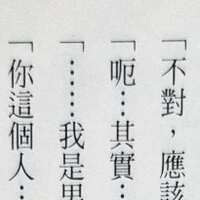 「不對，應該
「呃…其實…
「……我是男
「你這個人…